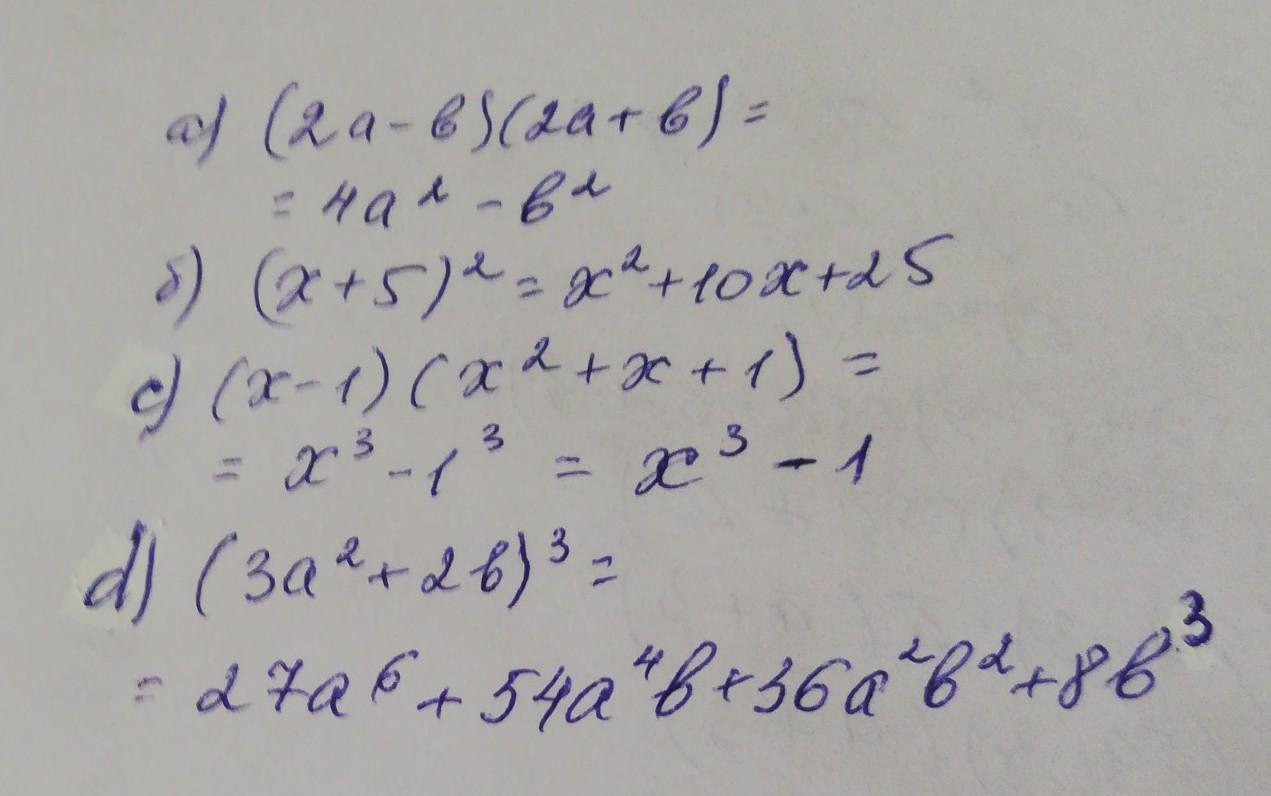 а) (2a-в)(2a+в)=
= 4a² - в²
б) (x+5)² = x²+10x+25
c) (x-1)(x²+x+1) =
= x³-1³ = x³-1
d) (3a²+2в)³ =
= 27a⁶ + 54a⁴в+36a²в²+8в³